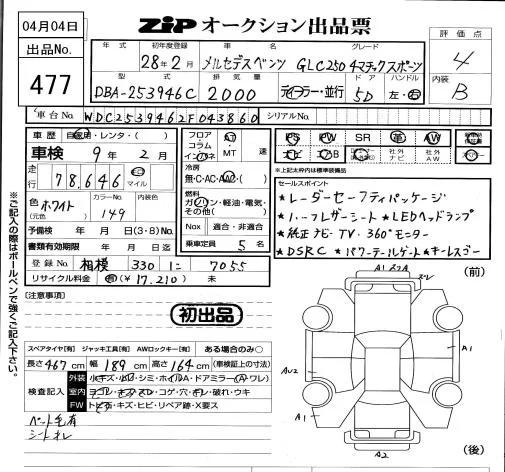 04月04日
ZIP オークション出品票
出品No. 477
評価点 4
内装 B
年式 初年度登録 28年2月
車名 メルセデスベンツ
グレード GLC250 4マチックスポーツ
型式 DBA-253946C
排気量 2000
ディーラー・並行
ドア 5D
ハンドル 左・右
車台No. WDC2539462F043860
シリアルNo.
車歴 自家用・レンタ・( )
車検 9年2月
走行 78,646 km マイル
色 ホワイト
(元色)
カラーNo. 149
内装色
予備検 年 月 日(3・8) No.
書類有効期限 年 月 日迄
登録No. 相模 330 に 7055
リサイクル料金 有(¥17,210) 未
フロア
コラム
インパネ
AT
・MT 速
冷房
無・C・AC・AAC・( )
燃料
ガソリン・軽油・電気・
その他( )
Nox 適合・非適合
乗車定員 5名
PS PW SR 革 AW
ナビ エアB 社外ナビ 社外AW
*上記太枠内は標準装備品
セールスポイント
★レーダーセーフティパッケージ
★ハーフレザーシート ★LEDヘッドランプ
★純正ナビ・TV・360°モニター
★DSRC ★パワーテールゲート★キーレスゴー
※ご記入の際はボールペンで強くご記入下さい。
[注意事項]
初出品
スペアタイヤ[有] ジャッキ工具[有] AWロックキー[有] ある場合のみ○
長さ467cm 幅189cm 高さ164cm (車検証上の寸法)
検査記入
外装 小キズ・小凹・シミ・ホイルA・ドアミラー(A・ワレ)
室内 ヨゴレ・キズ・スレ・コゲ・穴・キレ・破れ・ウキ
FW トビ石・キズ・ヒビ・リペア跡・X要ス
ペット毛有
シートオレ
(前)
A1
A1
AU2
A1
A2
(後)